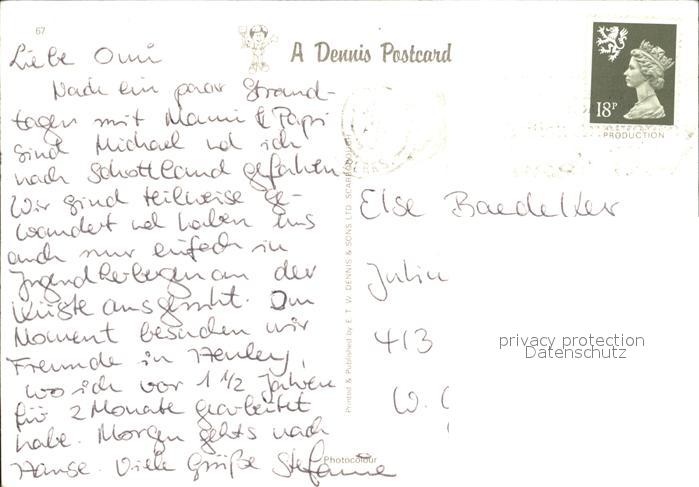 67
A Dennis Postcard
18P
PRODUCTION
Liebe Omi
Nach ein paar Strand-
tagen mit Mami & Papi
sind Michael und ich
nach Schottland gefahren
Wir sind teilweise ge-
wandert und haben uns
auch nur einfach in
Jugendherbergen an der
Küste ausgeruht. Im
Moment besuchen wir
Freunde in Henley,
wo ich vor 1 1/2 Jahren
für 2 Monate gearbeitet
habe. Morgen gehts nach
Hause. Viele Grüße Stefanie
Printed & Published by E. T. W. DENNIS & SONS LTD. SCARBOROUGH
Photocolour
Else Baedeker
Julia
413
W. G
privacy protection
Datenschutz